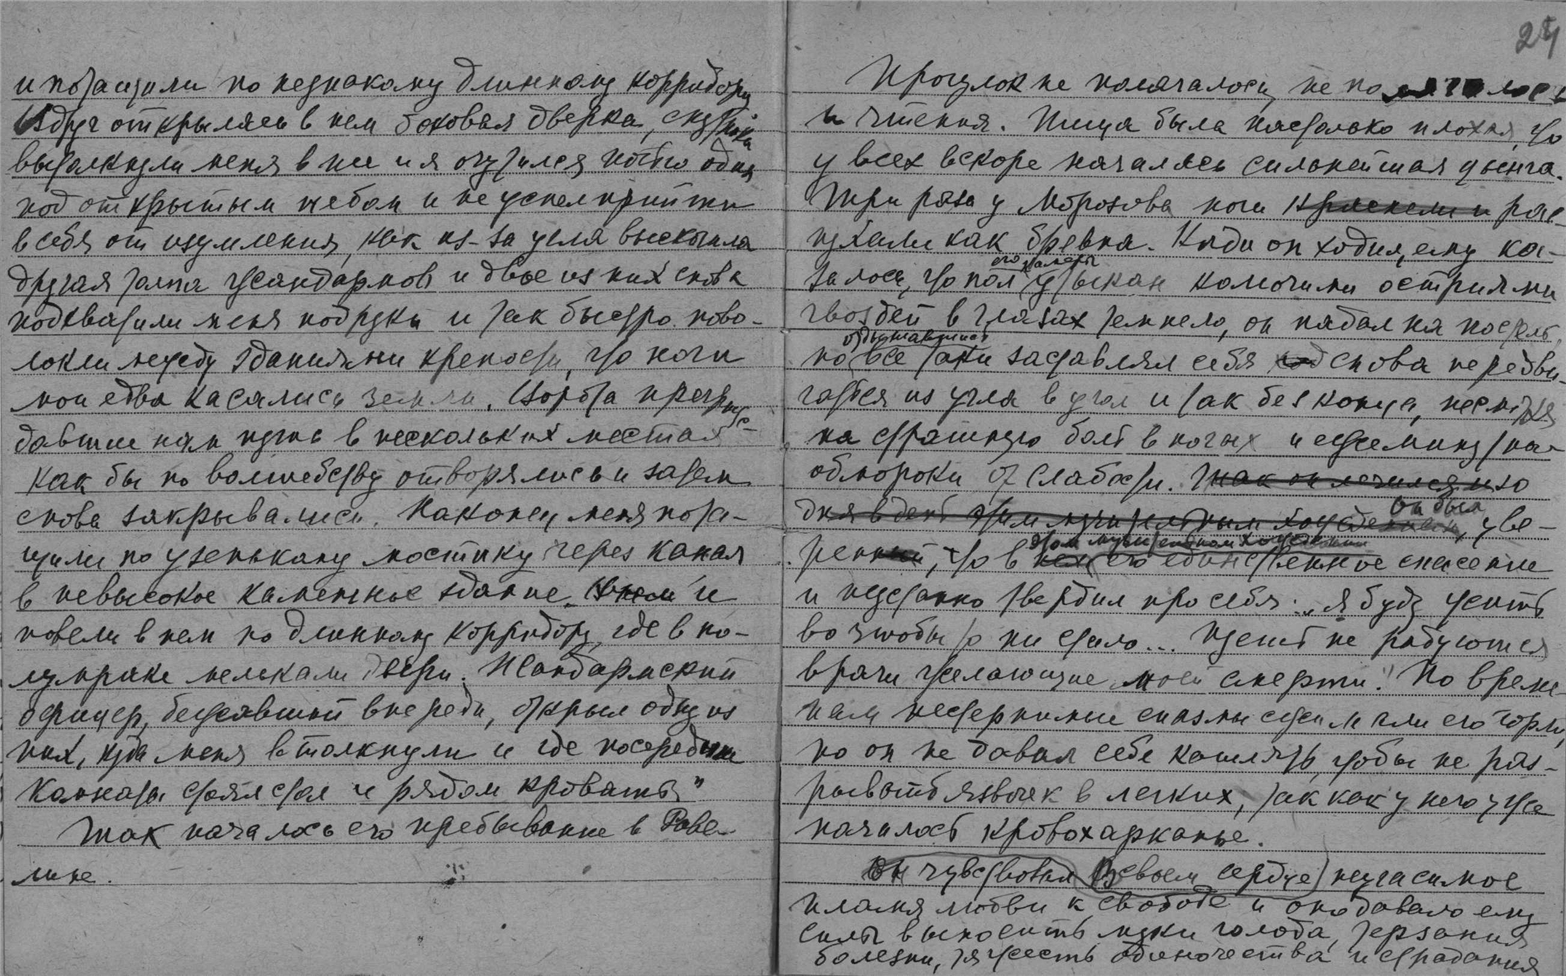 и потащили по незнакому длинному корридору
Вдруг открылась в нем боковая дверка, снаружи
вытолкнули меня в нее и я очутился ночью один
под открытым небом и не успел прийти
в себя от изумления, как из-за угла выскочила
другая толпа жандармов и двое из них снова
подхватили меня под руки и так быстро пово-
локли между зданиями крепости, что ноги
мои едва касались земли. Ворота прегра-
ждавшие нам путь в нескольких местах
как бы по волшебству отворялись и затем
снова закрывались. Наконец, меня пота-
щили по узенькому мостику через канал
в невысокое каменное здание и
повели в нем по длинному корридору, где в по-
лумраке мелькали двери. Жандармский
офицер, бежавший впереди, открыл одну из
них, куда меня втолкнули и где посередине
комнаты стоял стол и рядом кровать"
Так началось его пребывание в Раве-
лине.
24
Прогулок не полагалось, не полагалось
и чтения. Пища была настолько плохая, что
у всех вскоре началась сильнейшая цынга.
Три раза у Морозова ноги краснели и рас-
пухали как бревна. Когда он ходил, ему ка-
залось, что пол его камеры утыкан колючими остриями
гвоздей в глазах темнело, он падал на постель,
но отдышавшись все таки заставлял себя снова передви-
гаться из угла в угол и так без конца, несмотря
на страшную боль в ногах и ежеминутные
обмороки от слабости. Так он лечился изо
дня в день этим мучительным хождением, он был уве-
рен, что в этом мучительном хождении его единственное спасение
и неустанно твердил про себя: „Я буду жить
во чтобы то ни стало... Пусть не радуются
врачи желающие моей смерти". По време-
нам нестерпимые спазмы сжимали его горло,
но он не давал себе кашлять, чтобы не раз-
рывать язвочек в легких, так как у него уже
началось кровохарканье.
Он чувствовал в своем сердце неугасимое
пламя любви к свободе и оно давало ему
силы выносить муки голода, терзания
болезни, тяжесть одиночества и страдания